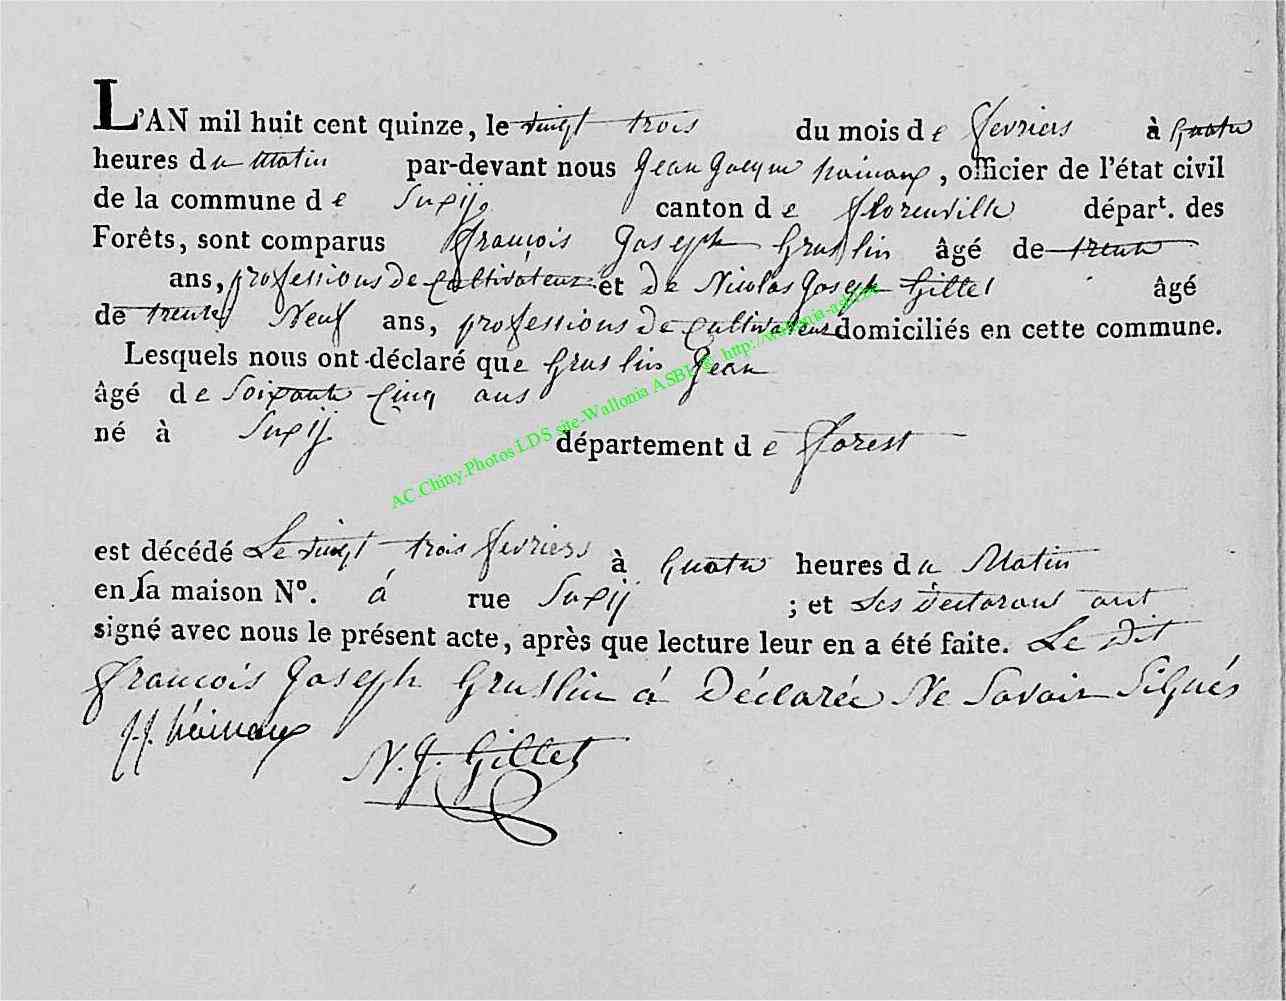 L'AN mil huit cent quinze, le vingt trois du mois de fevriers à quatre
heures du Matin par-devant nous Jean Jacque hainaux, officier de l'état civil
de la commune de Suxij canton de florenville départ. des
Forêts, sont comparus françois Joseph Gruslin âgé de trente
ans, professions de Cultivateur et de Nicolas Joseph Gillet âgé
de trente Neuf ans, professions de Cultivateur domiciliés en cette commune.
Lesquels nous ont déclaré que Gruslin Jean
âgé de Soixante Cinq ans
né à Suxij département de fforest
est décédé Le vingt trois fevriers à quatre heures du Matin
en sa maison N°. á rue Suxij ; et Les declarans ont
signé avec nous le présent acte, après que lecture leur en a été faite. Le dit
françois Joseph Gruslin á Déclarée Ne Savoir Signés
J.J. hainaux
N.J. Gillet
AC.Chiny.Photos LDS site-Wallonia ASBL